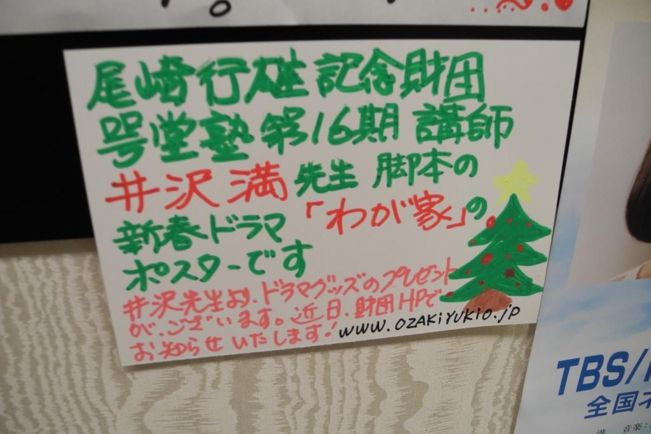 尾崎行雄記念財団
咢堂塾第16期講師
井沢満先生 脚本の
新春ドラマ「わが家」の
ポスターです
井沢先生より、ドラマグッズのプレゼント
が、ございます。近日、財団HPで
お知らせいたします！www.ozakiyukio.jp
TBS/
全国ネ